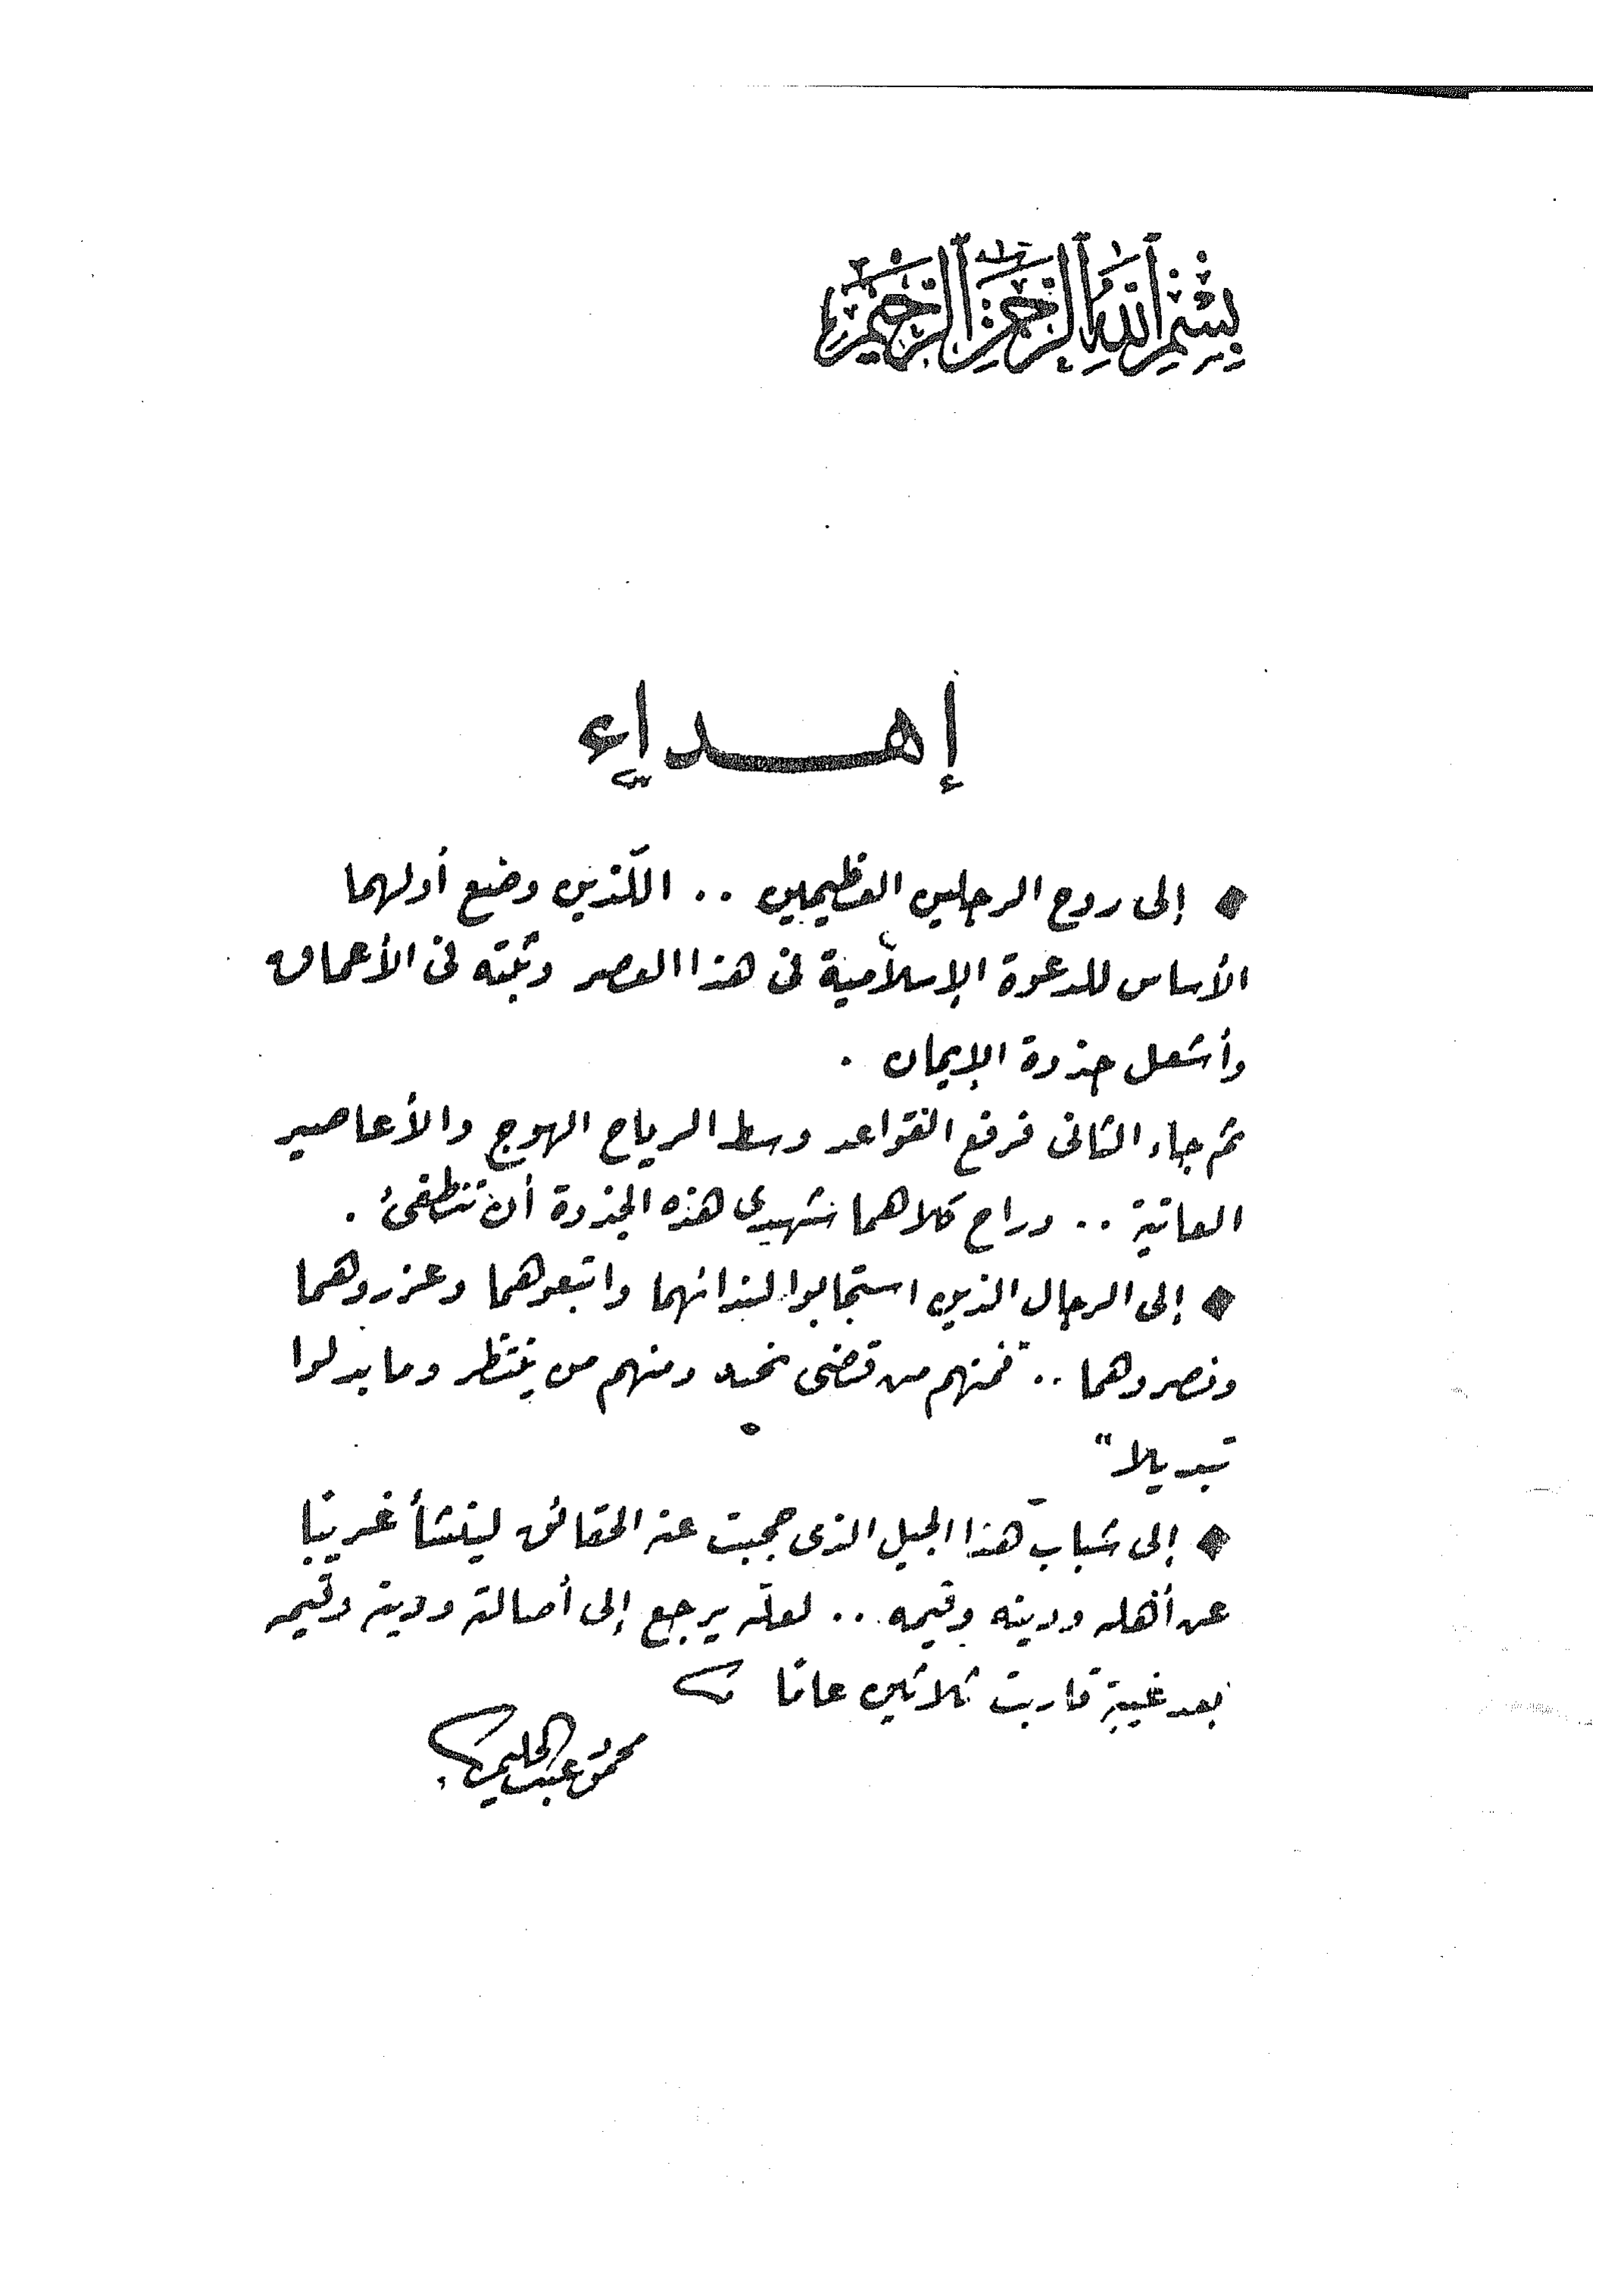 بسم الله الرحمن الرحيم
إهداء
◆ إلى روح الرجلين العظيمين .. اللّذين وضع أولهما
الأساس للدعوة الإسلامية فى هذا العصر وثبّته فى الأعماق
وأشعل جذوة الإيمان .
ثم جاء الثانى فرفع القواعد وسط الرياح الهوج والأعاصير
العاتية .. وراح كلاهما شهيدى هذه الجذوة أن تنطفئ .
◆ إلى الرجال الذين استجابوا لندائهما واتبعوهما وعزروهما
ونصروهما .. "فمنهم من قضى نحبه ومنهم من ينتظر وما بدلوا
تبديلا"
◆ إلى شباب هذا الجيل الذى حجبت عنه الحقائق لينشأ غريبًا
عن أهله ودينه وقيمه .. لعلّه يرجع إلى أصالته ودينه وقيمه
بعد غيبة قاربت ثلاثين عامًا
محمود عبد الحليم